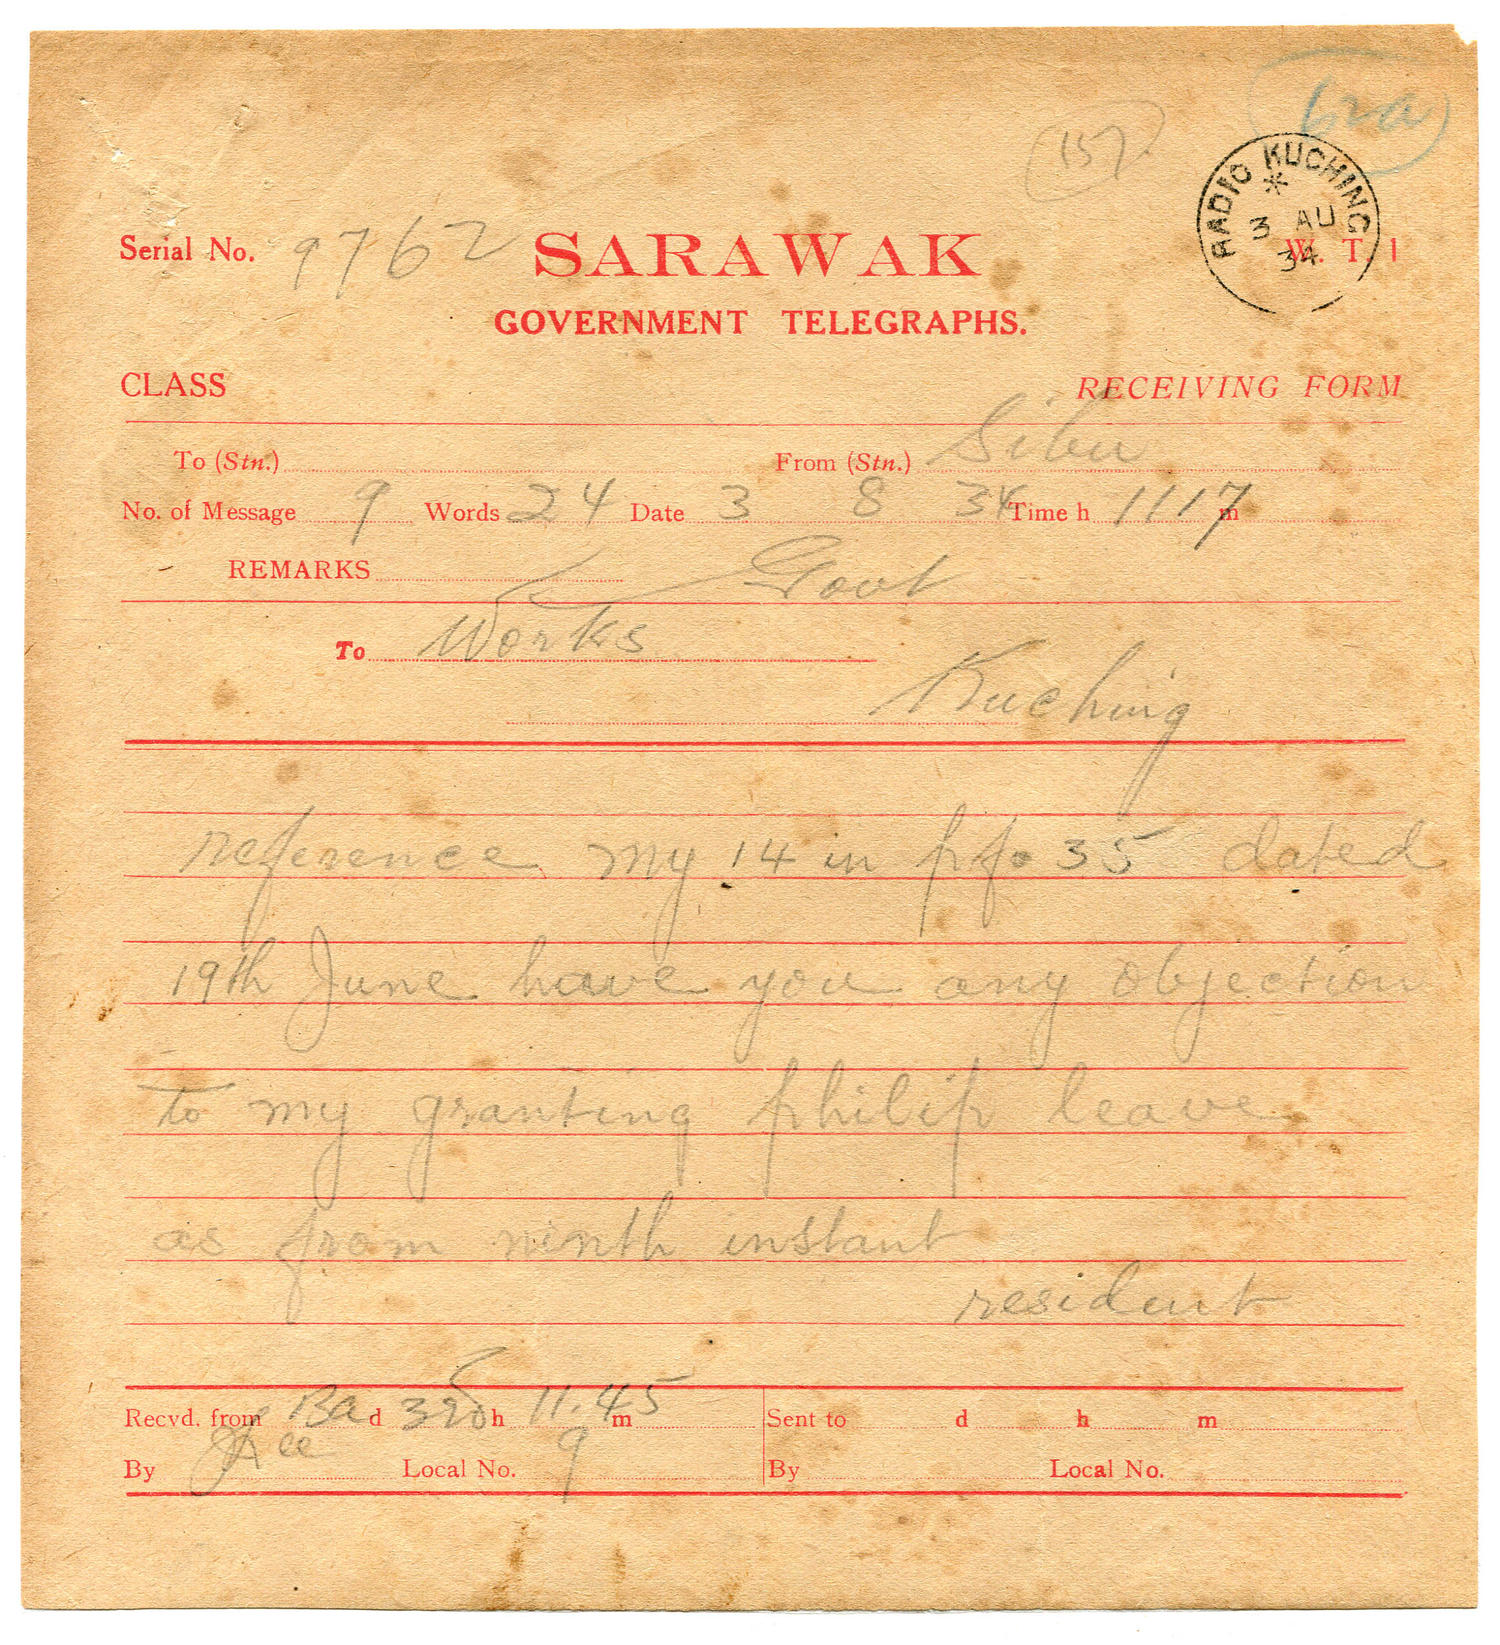 62a
157
RADIO KUCHING
3 AU
34
Serial No. 9762 SARAWAK W. T. 1
GOVERNMENT TELEGRAPHS.
CLASS RECEIVING FORM
To (Stn.) From (Stn.) Sibu
No. of Message 9 Words 24 Date 3 8 34 Time h 1117 m
REMARKS Govt
To Works
Kuching
reference my 14 in pf. 35 dated
19th June have you any objection
to my granting philip leave
as from ninth instant
resident
Recvd. from Ba d 3rd h 11.45 m Sent to d h m
By Local No. 9 By Local No.